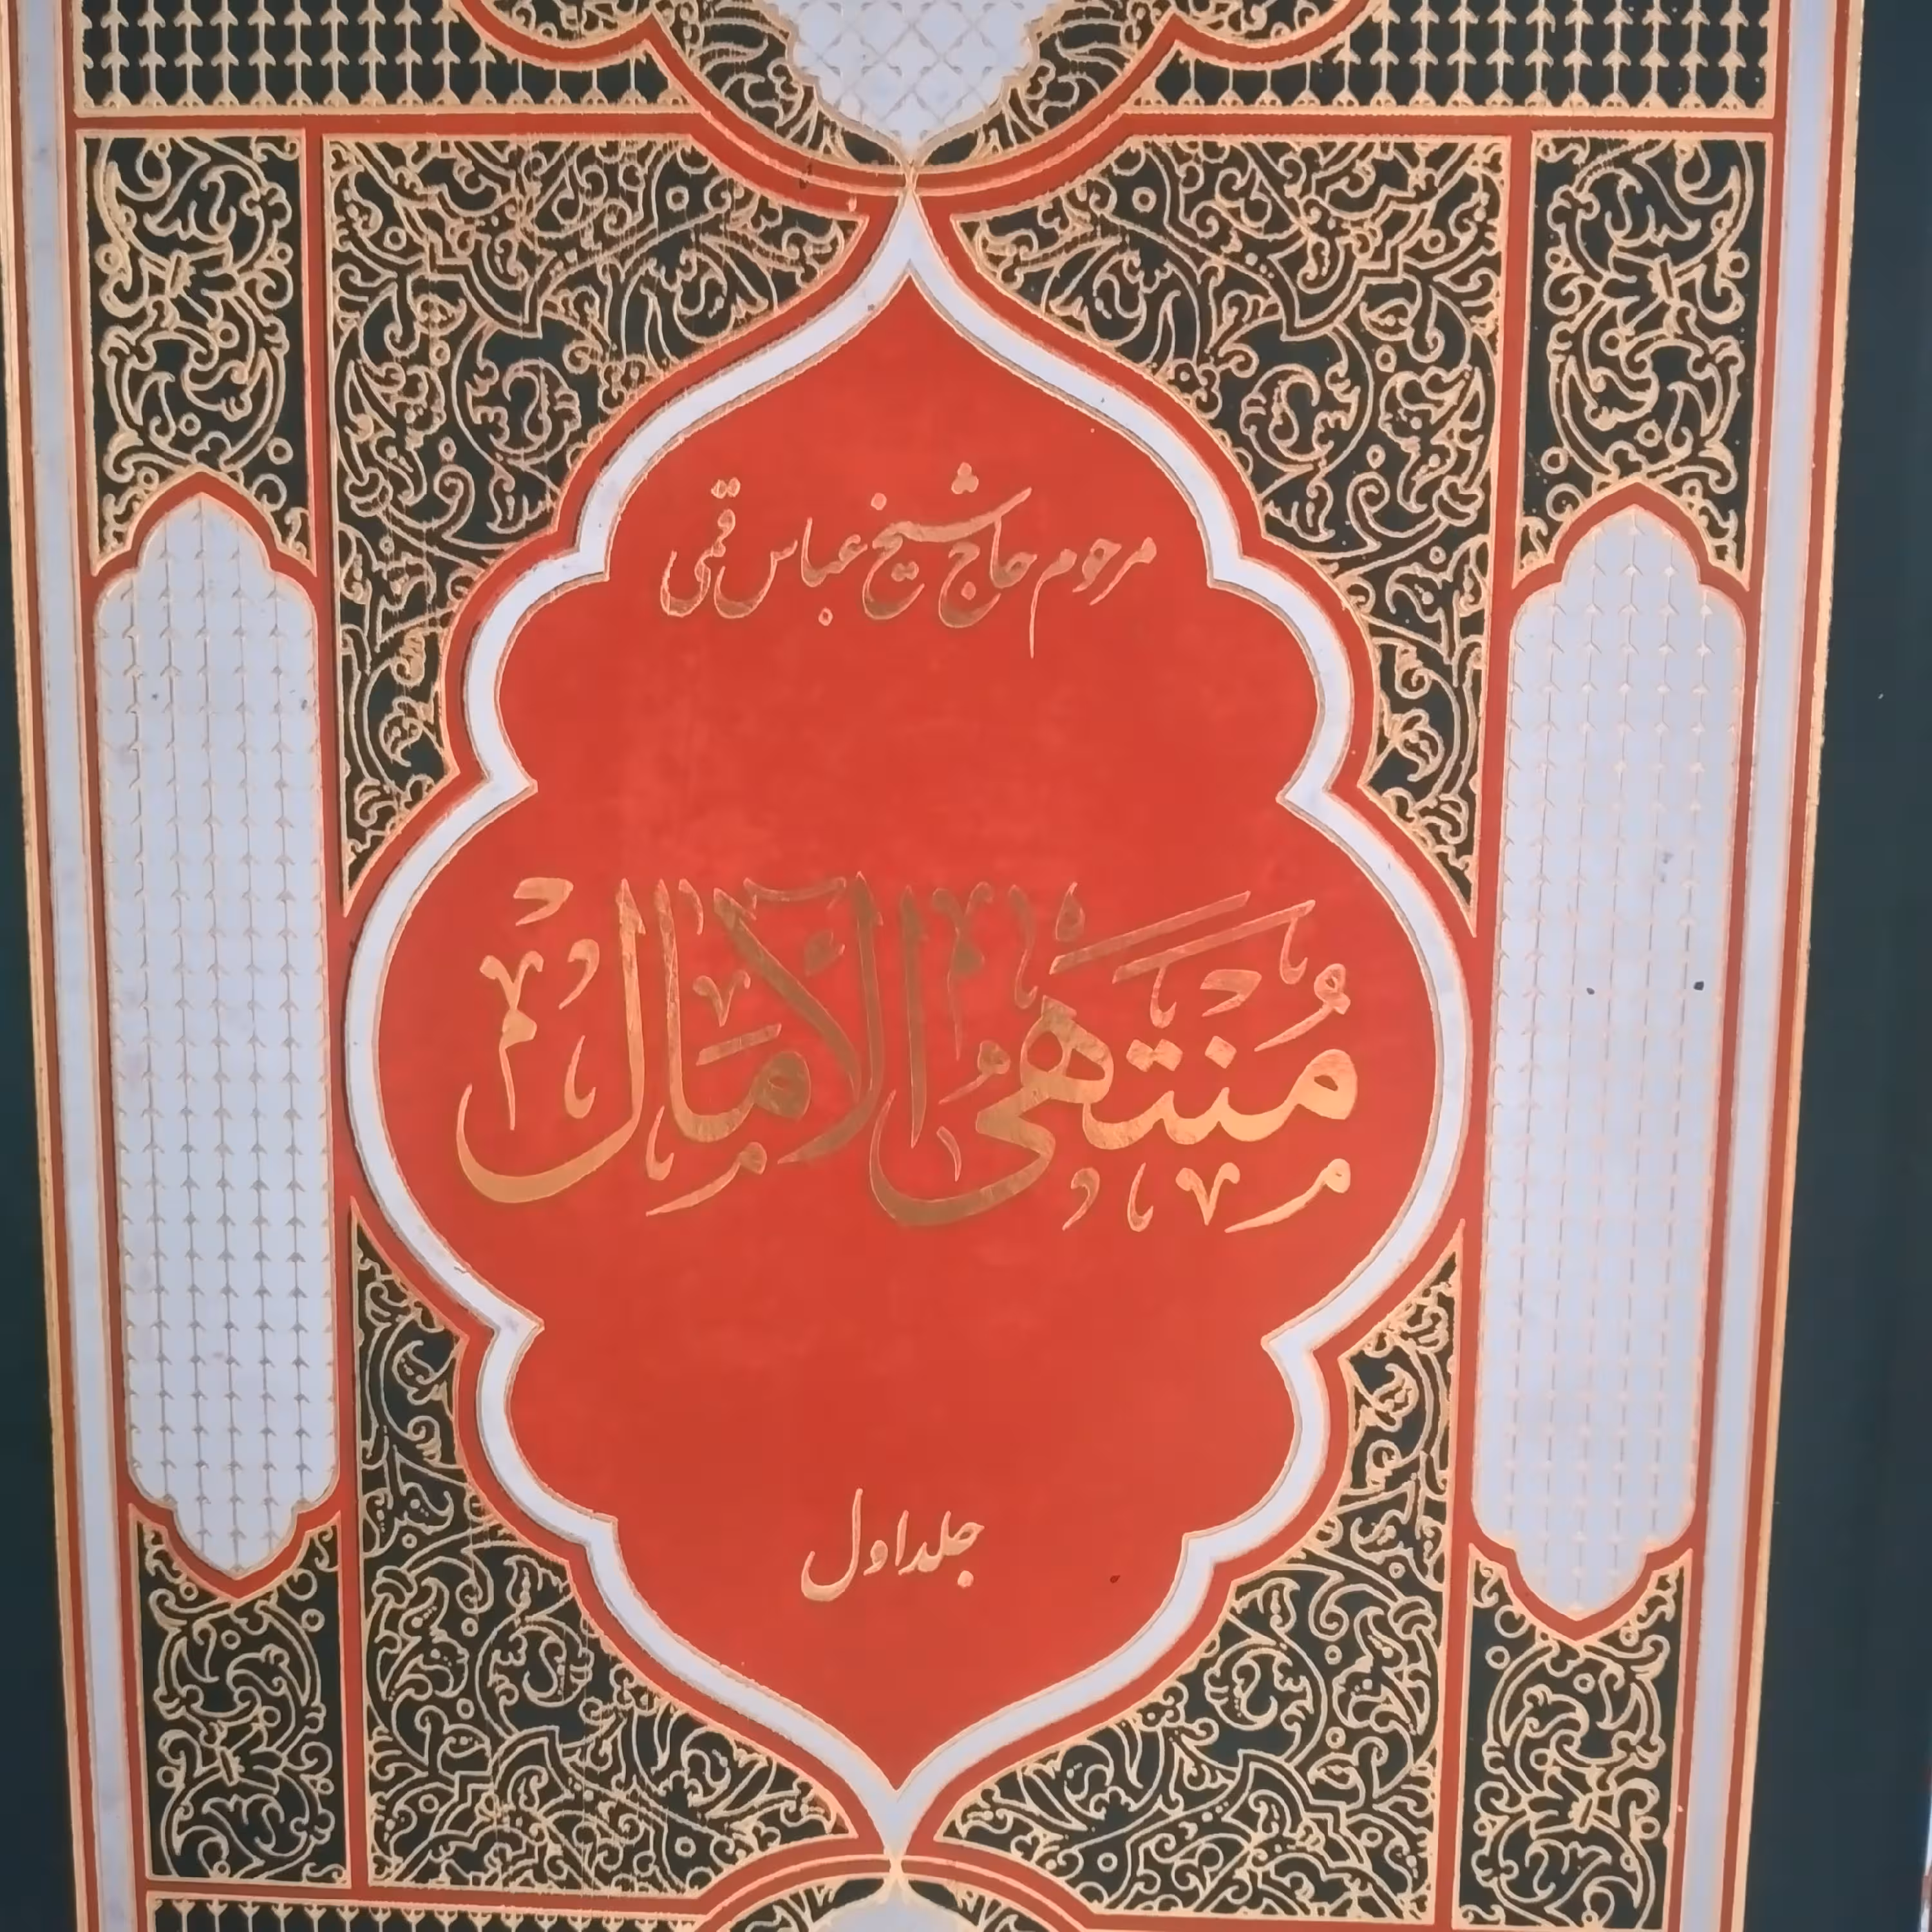 مرحوم حاج شیخ عباس قمی
مُنتَهیُ الآمَال
جلد اول